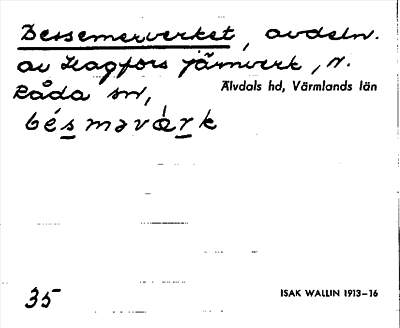 Bessemerverket, avdeln.
av Hagfors järnverk, N.
Råda sn, Älvdals hd, Värmlands län
bésmərvàrk
35 ISAK WALLIN 1913–16